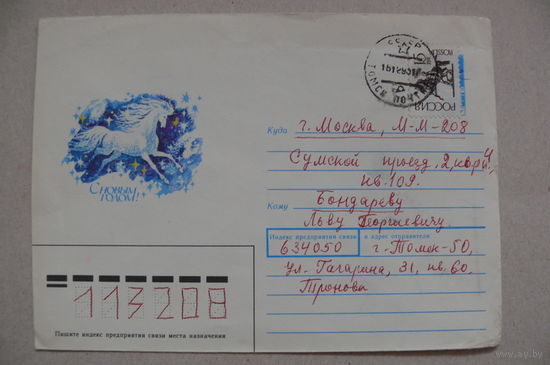 СССР
16 12 93 17
ТОМСК ПОЧТАМТ
РОССИЯ
ROSSIJA
Куда г. Москва, М-М-208
Сумской проезд, 2, корп 4,
кв. 109.
Кому Бондареву
Льву Георгиевичу.
Индекс предприятия связи и адрес отправителя
634050 г. Томск-50,
ул. Гагарина, 31, кв. 60.
Тронова
С НОВЫМ
ГОДОМ!
113208
Пишите индекс предприятия связи места назначения